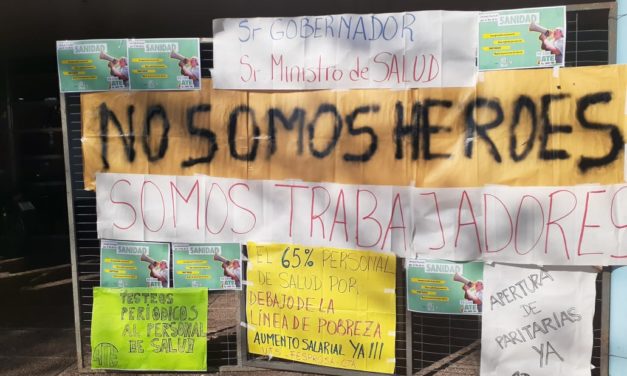 Sr GOBERNADOR
Sr MINISTRO de SALUD
SANIDAD
SANIDAD
NO SOMOS HEROES
SOMOS TRABAJADORES
SANIDAD
SANIDAD
SANIDAD
ATE
TESTEOS
PERIÓDICOS
AL PERSONAL
DE SALUD
EL 65% PERSONAL
DE SALUD POR
DEBAJO DE LA
LÍNEA DE POBREZA
AUMENTO SALARIAL YA!!!
APERTURA
DE
PARITARIAS
YA